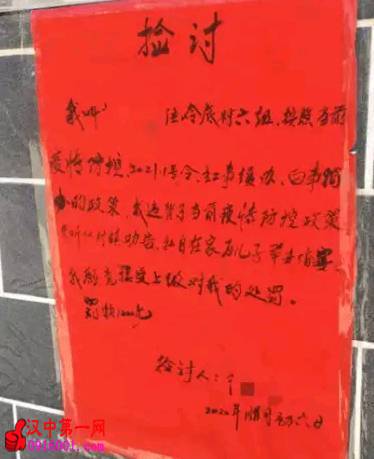 捡讨
我叫 住冷底村六组，按照当前
疫情防控，2021.1号令，红事缓办、白事简
办的政策，我违背了当前疫情防控政策
不听从村镇劝告，私自在家为儿子举办婚宴
我愿意接受上级对我的处罚。
罚款1000元
捡讨人：
2020年腊月初六日
汉中第一网
0916001.com